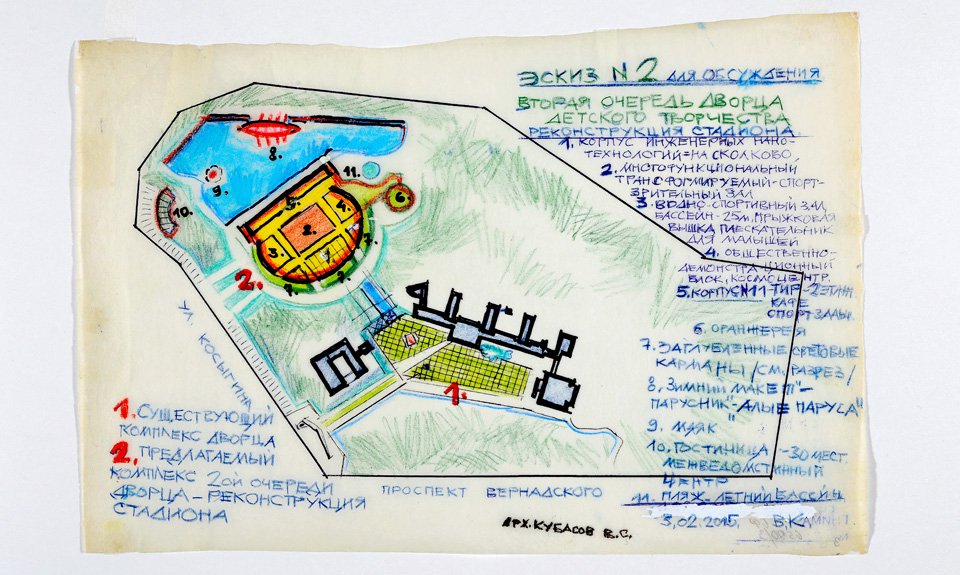 ЭСКИЗ N2 ДЛЯ ОБСУЖДЕНИЯ
ВТОРАЯ ОЧЕРЕДЬ ДВОРЦА
ДЕТСКОГО ТВОРЧЕСТВА
РЕКОНСТРУКЦИЯ СТАДИОНА.
1. КОРПУС ИНЖЕНЕРНЫХ НАНО-
ТЕХНОЛОГИЙ = НА СКОЛКОВО
2. МНОГОФУНКЦИОНАЛЬНЫЙ
ТРАНСФОРМИРУЕМЫЙ-СПОРТ-
ЗРИТЕЛЬНЫЙ ЗАЛ
3. ВОДНО-СПОРТИВНЫЙ ЗАЛ
БАССЕЙН-25М, ПРЫЖКОВАЯ
ВЫШКА ПЛЕСКАТЕЛЬНИК
ДЛЯ МАЛЫШЕЙ
4. ОБЩЕСТВЕННО-
ДЕМОНСТРАЦИОННЫЙ
БЛОК, КОСМОСЦЕНТР.
5. КОРПУС N11 ТИР-2 ЭТАЖ
КАФЕ
СПОРТ-ЗАЛЫ
6. ОРАНЖЕРЕЯ
7. ЗАГЛУБЛЕННЫЕ СВЕТОВЫЕ
КАРМАНЫ /СМ. РАЗРЕЗ/
8. ЗИМНИЙ МАКЕТ-
ПАРУСНИК-"АЛЫЕ ПАРУСА"
9. МАЯК
10. ГОСТИНИЦА -30 МЕСТ.
МЕЖВЕДОМСТИННЫЙ
ЦЕНТР
11. ПЛЯЖ-ЛЕТНИЙ БАССЕЙН
3.02.2015.
8.
9.
10.
11.
5.
4.
6.
2.
3.
1.
7.
7.
7.
2.
1.
УЛ. КОСЫГИНА
1. СУЩЕСТВУЮЩИЙ
КОМПЛЕКС ДВОРЦА
2. ПРЕДЛАГАЕМЫЙ
КОМПЛЕКС 2ОЙ ОЧЕРЕДИ
ДВОРЦА-РЕКОНСТРУКЦИЯ
СТАДИОНА
ПРОСПЕКТ ВЕРНАДСКОГО
АРХ. КУБАСОВ В.С.